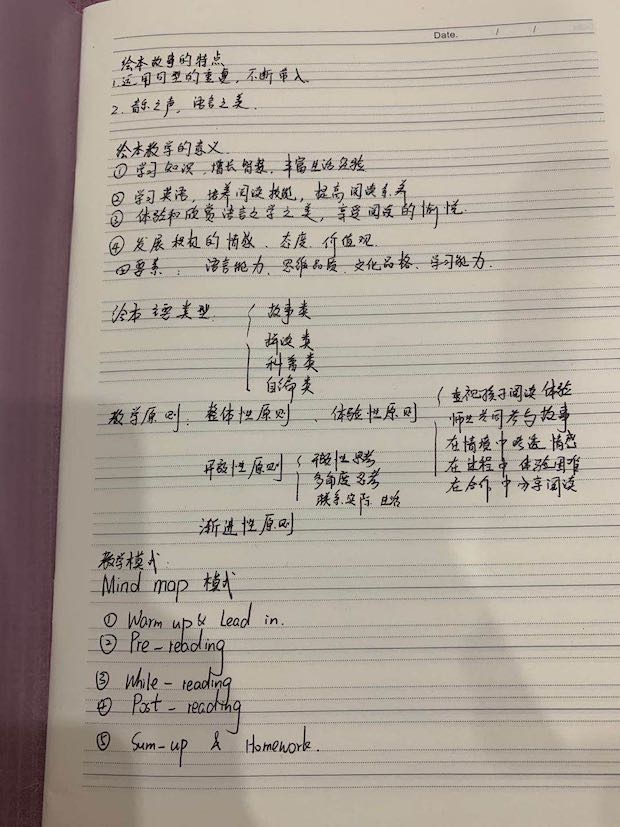 Date. / /
绘本故事的特点
1.运用句型的重复,不断带入.
2.音乐之声,语言之美.
绘本教学的意义
① 学习知识,增长智慧,丰富生活经验
② 学习英语,培养阅读技能,提高阅读素养
③ 体验和欣赏语言文学之美,享受阅读的愉悦.
④ 发展积极的情感、态度、价值观.
四要素: 语言能力、思维品质、文化品格、学习能力.
绘本主要类型 { 故事类
类
科普类
自命类
教学原则:整体性原则 、体验性原则 { 重视孩子阅读体验
师生共同参与故事
在情境中 情感
在过程中体验困难
在合作中分享阅读
开放性原则 { 开放性思考
多角度思考
联系实际生活
渐进性原则
教学模式:
Mind map 模式
① Warm up & Lead in.
② Pre-reading
③ While-reading
④ Post-reading
⑤ Sum-up & Homework.